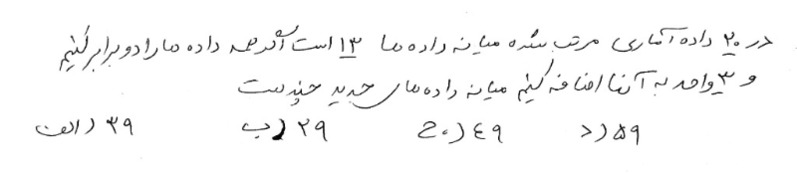 در ۲۰ داده آماری مرتب شده میانه داده ها ۱۳ است اگر همه داده ها را دو برابر کنیم
و ۳ واحد به آنها اضافه کنیم میانه داده های جدید چند است
الف) ۳۹ ب) ۲۹ ج) ۴۹ د) ۵۹